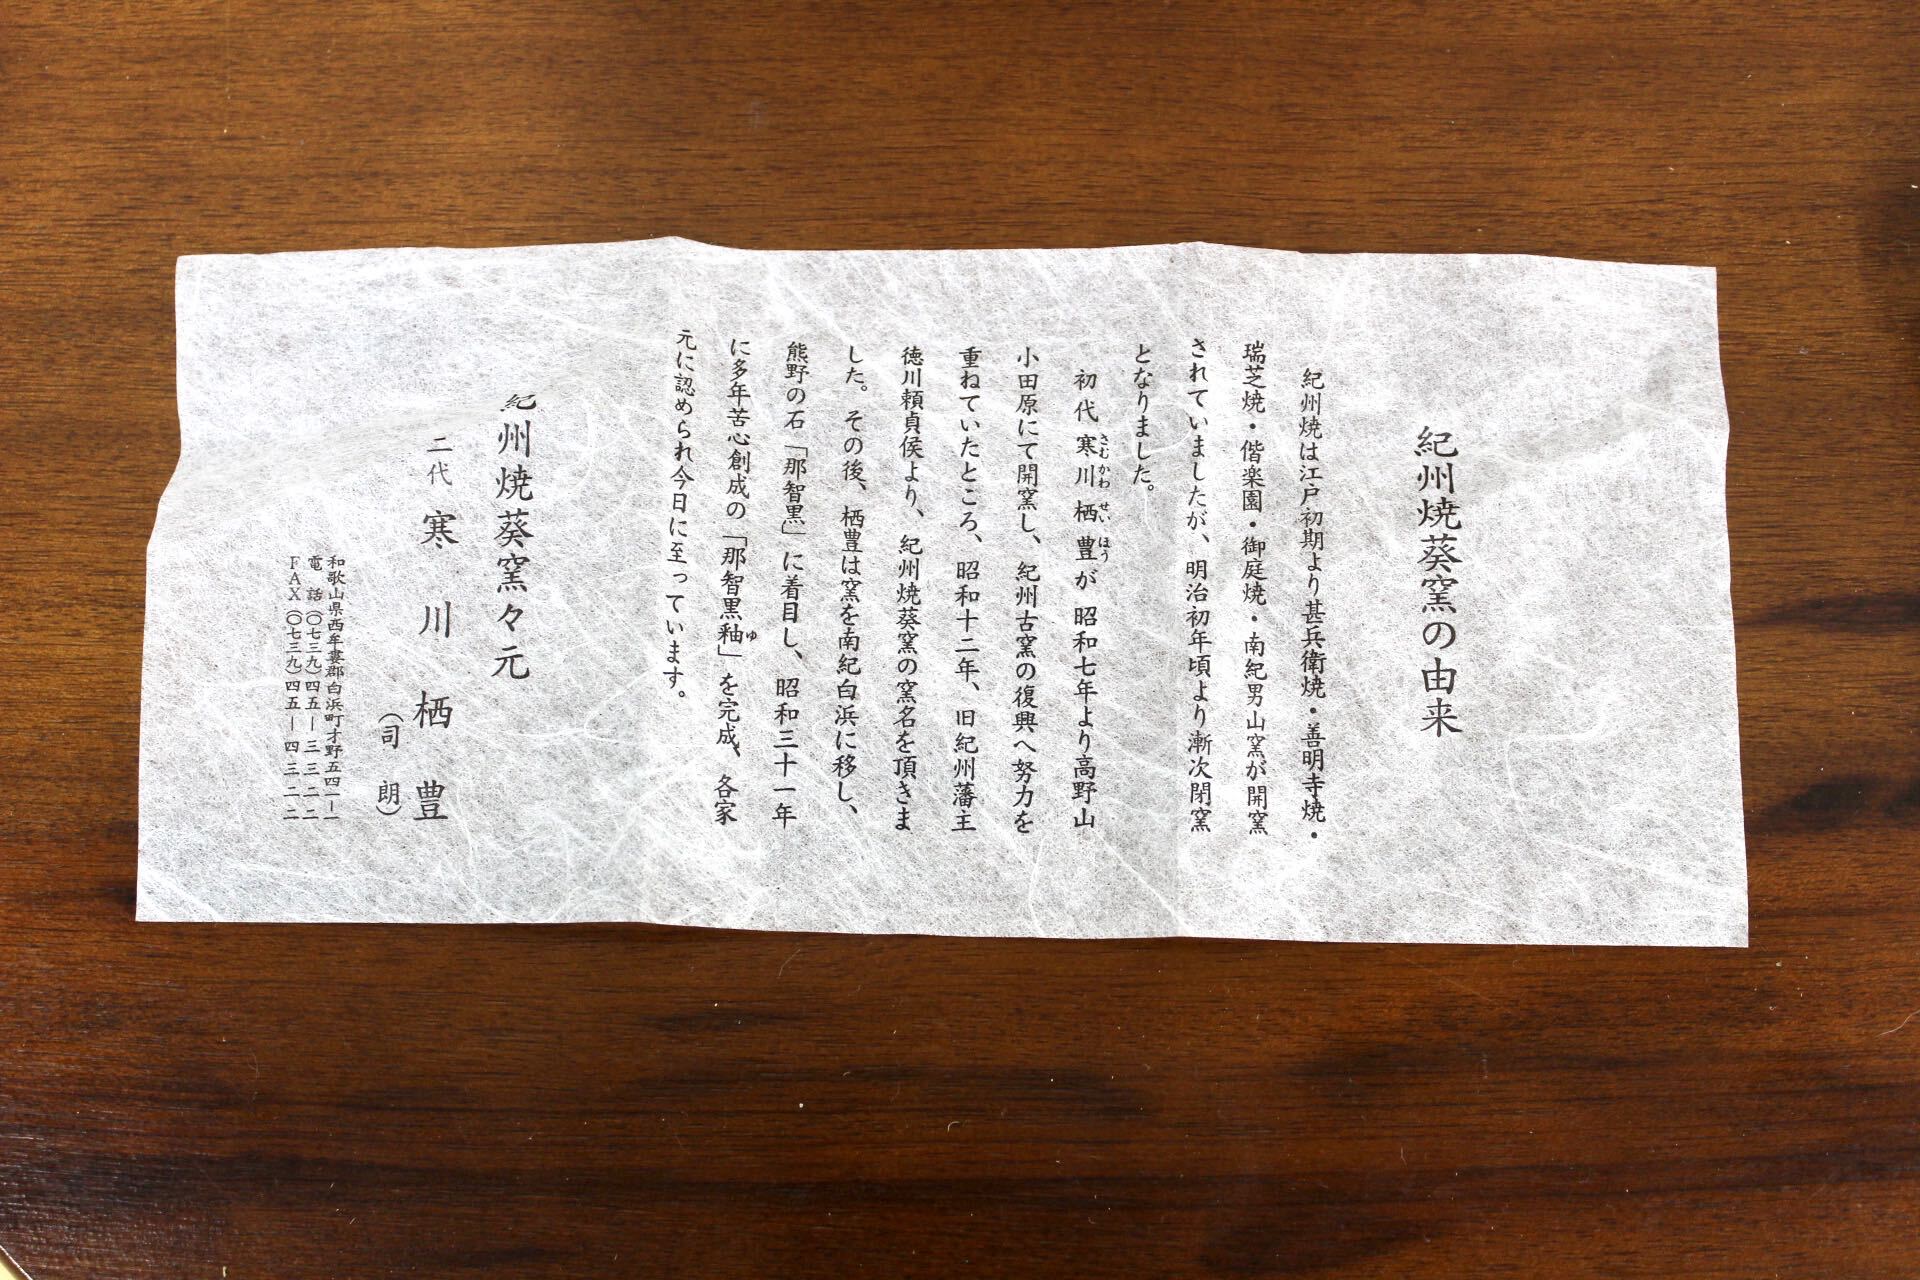 紀州焼葵窯の由来
紀州焼は江戸初期より甚兵衛焼・善明寺焼・
瑞芝焼・偕楽園・御庭焼・南紀男山窯が開窯
されていましたが、明治初年頃より漸次閉窯
となりました。
初代 寒川 栖豊が 昭和七年より高野山
さむかわ せいほう
小田原にて開窯し、紀州古窯の復興へ努力を
重ねていたところ、昭和十二年、旧紀州藩主
徳川頼貞侯より、紀州焼葵窯の窯名を頂きま
した。その後、栖豊は窯を南紀白浜に移し、
熊野の石「那智黒」に着目し、昭和三十一年
に多年苦心創成の「那智黒釉」を完成、各家
ゆ
元に認められ今日に至っています。
紀州焼葵窯々元
二代 寒川 栖豊
(司朗)
和歌山県西牟婁郡白浜町才野五四一-一
電話(〇七三九)四五-三三二二
FAX(〇七三九)四五-四三二二